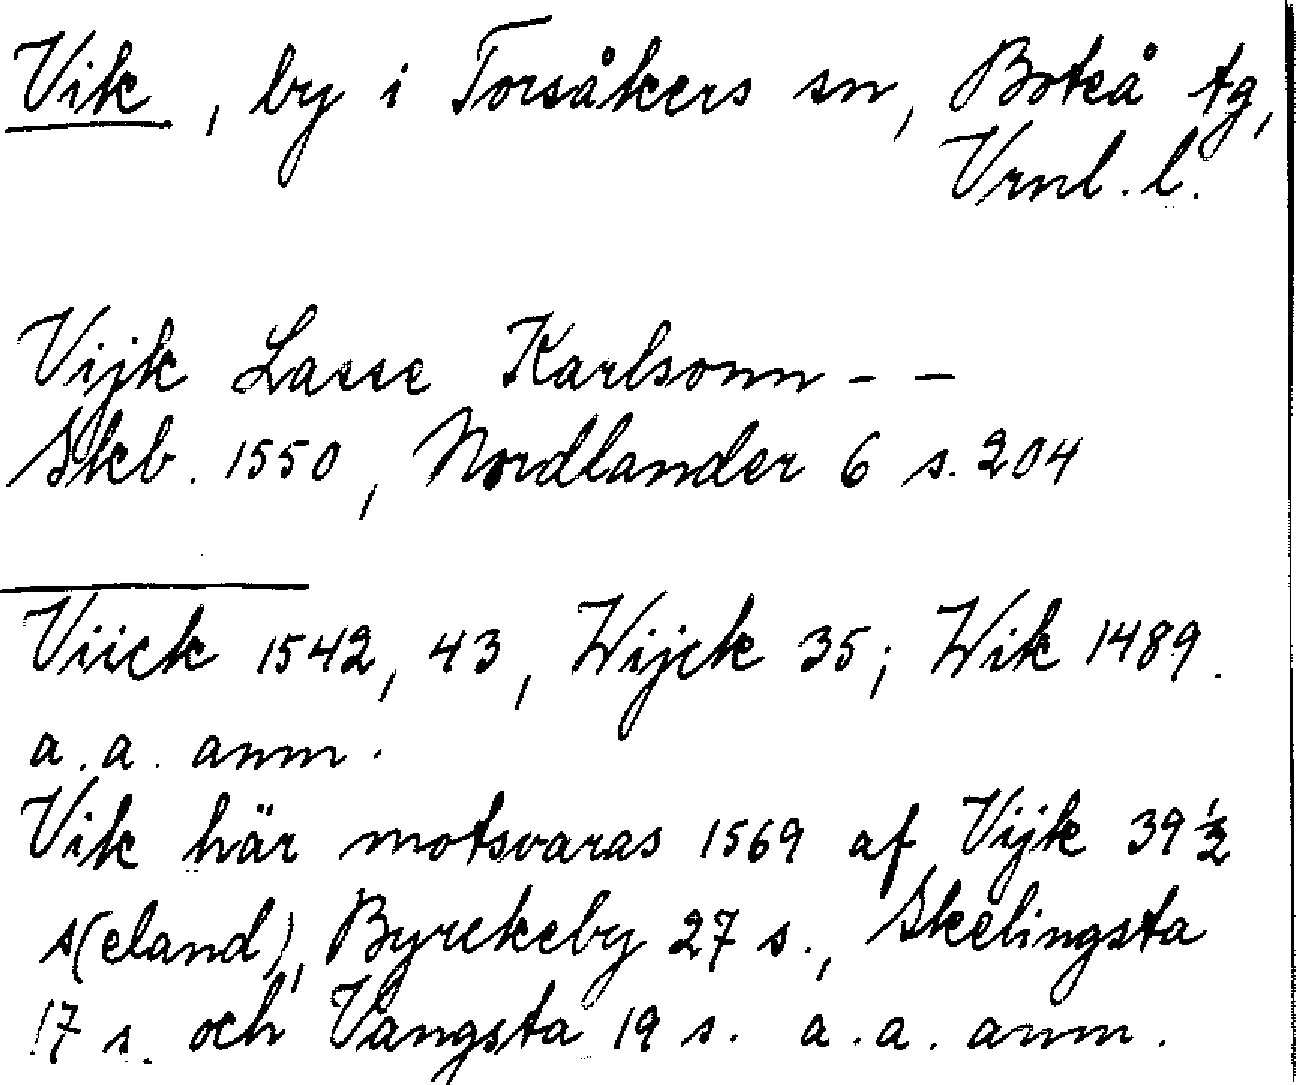 Vik, by i Torsåkers sn, Boteå tg,
Vrnl. l.
Vijk Lasse Karlsonn - -
Skb. 1550, Nordlander 6 s. 204
Viick 1542, 43, Wijck 35; Wik 1489.
a. a. anm.
Vik här motsvaras 1569 af Vijk 39 1/2
s(eland), Byrckeby 27 s., Skelingsta
17 s. och Vangsta 19 s. a. a. anm.